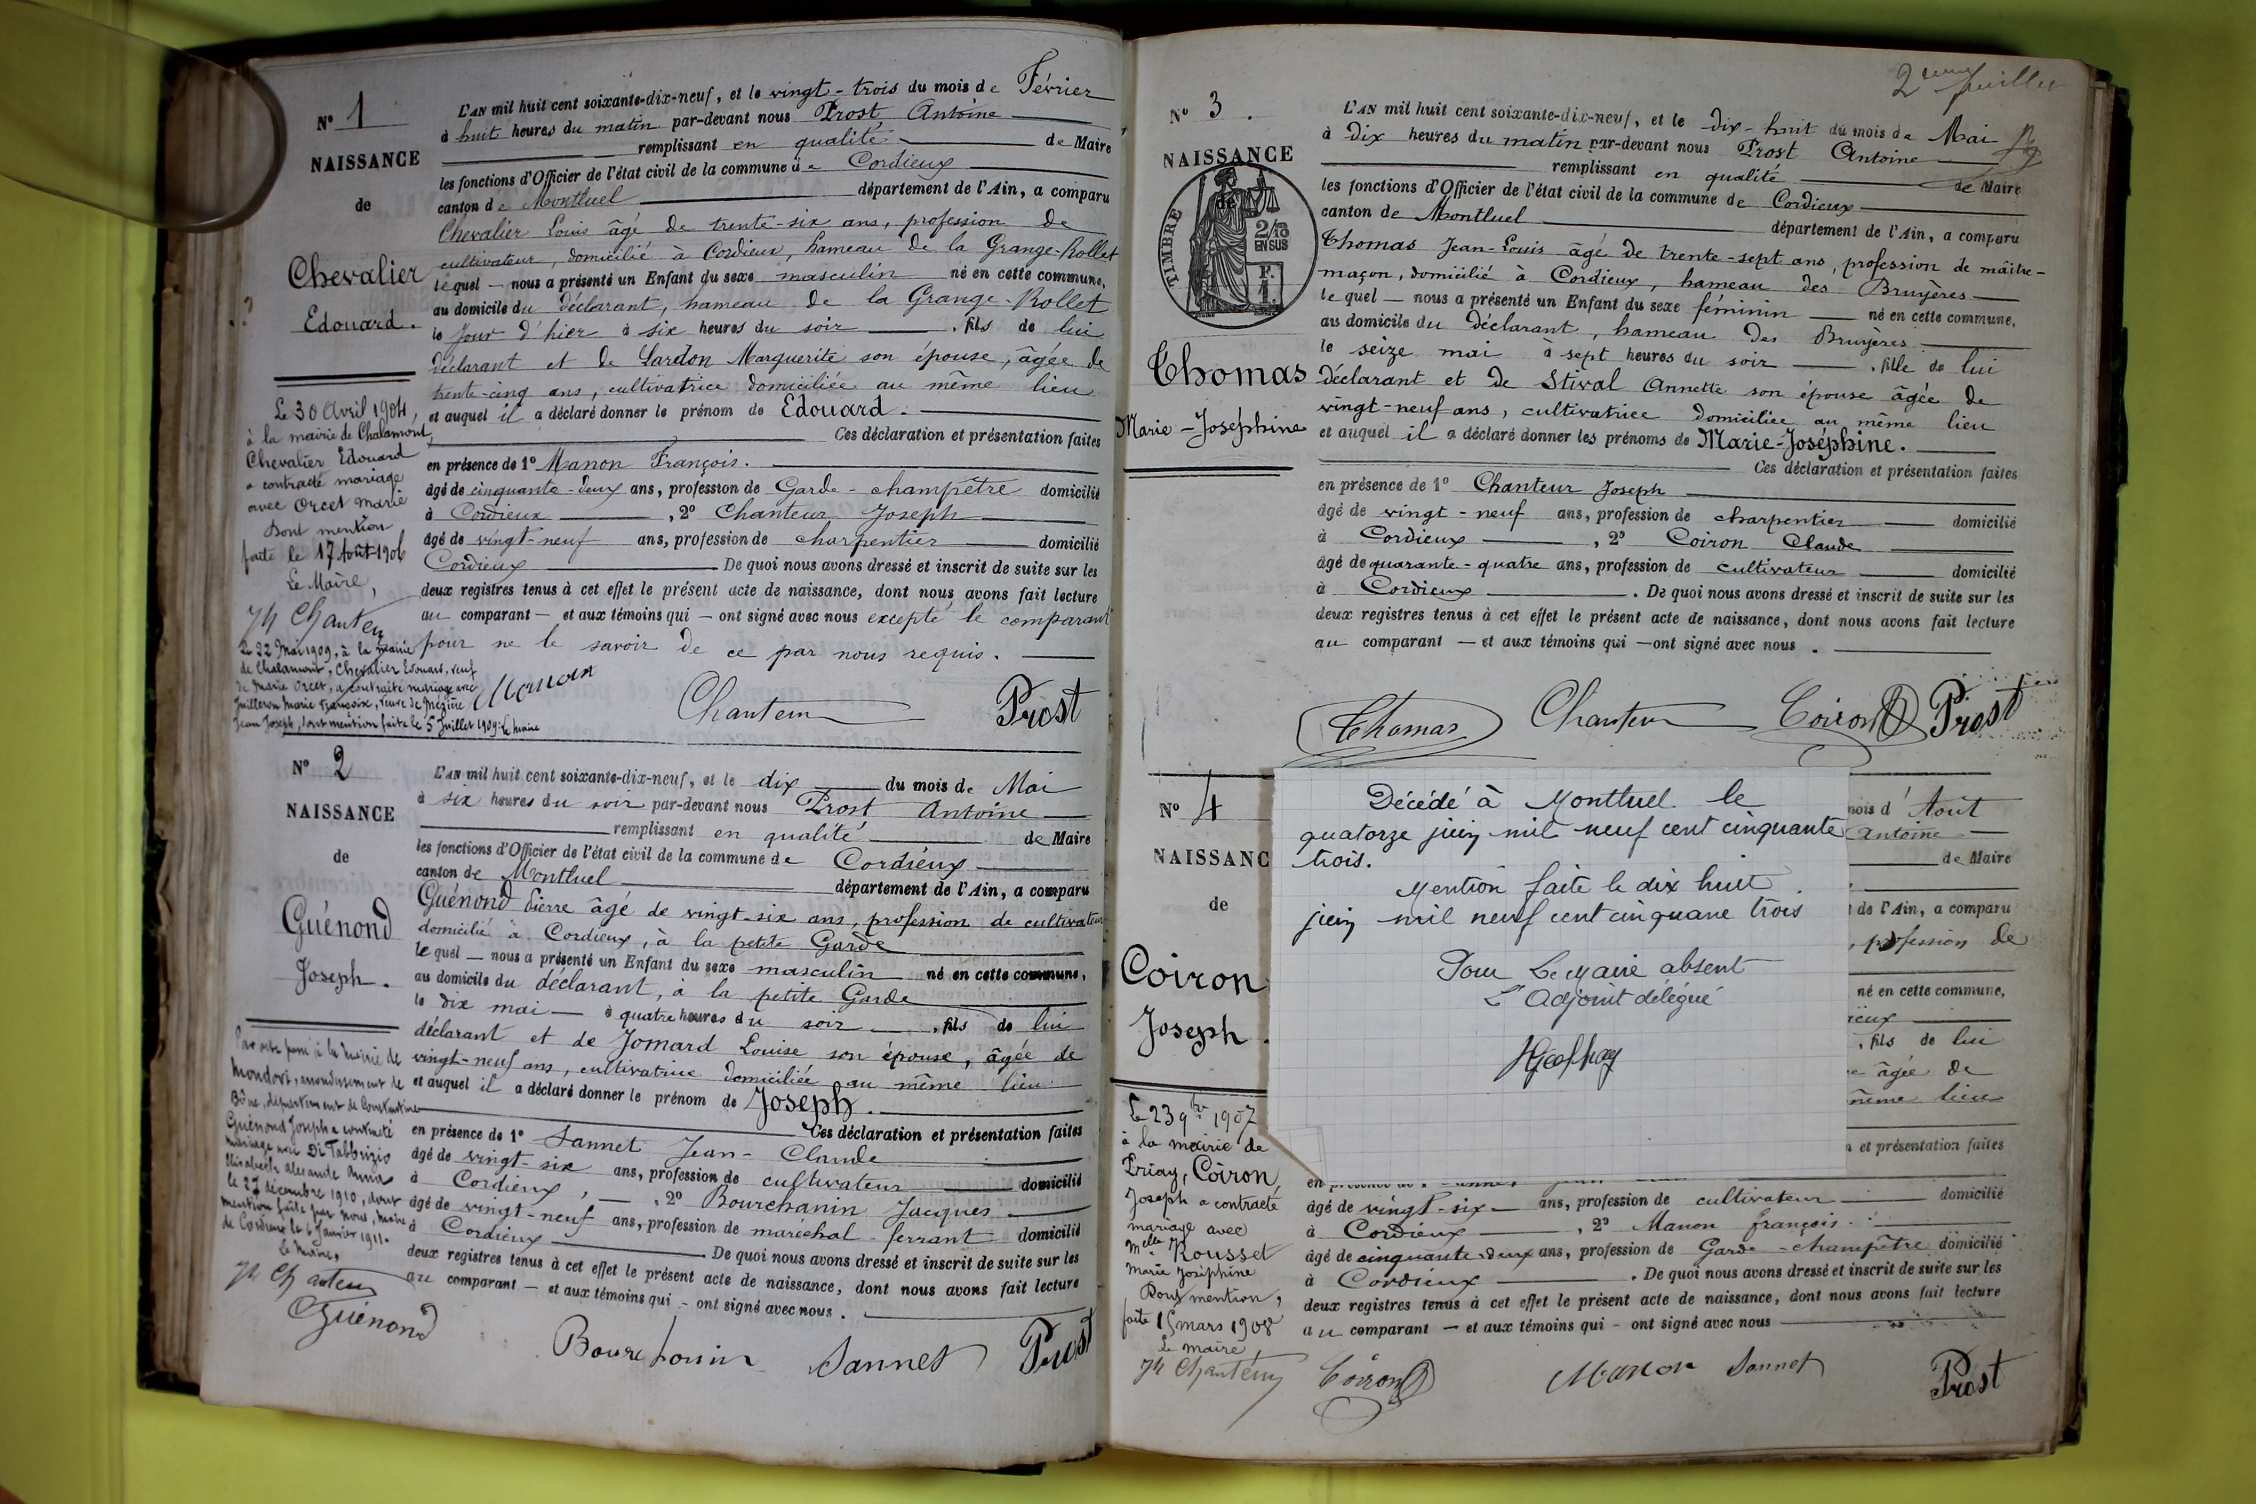 N° 1
NAISSANCE
de
Chevalier
Edouard.
L'AN mil huit cent soixante-dix-neuf, et le vingt-trois du mois de Février
à huit heures du matin par-devant nous Prost Antoine
remplissant en qualité de Maire
les fonctions d'Officier de l'état civil de la commune de Cordieux
canton de Montluel département de l'Ain, a comparu
Chevalier Louis âgé de trente-six ans, profession de
cultivateur, domicilié à Cordieux, hameau de la Grange-Rollet
lequel — nous a présenté un Enfant du sexe masculin né en cette commune,
au domicile du déclarant, hameau de la Grange-Rollet
le jour d'hier à six heures du soir, fils de lui
déclarant et de Lardon Marguerite son épouse, âgée de
trente-cinq ans, cultivatrice domiciliée au même lieu
et auquel il a déclaré donner le prénom de Edouard.
Ces déclaration et présentation faites
en présence de 1° Manon François.
âgé de cinquante-deux ans, profession de Garde-champêtre domicilié
à Cordieux, 2° Chanteur Joseph
âgé de vingt-neuf ans, profession de charpentier domicilié
Cordieux De quoi nous avons dressé et inscrit de suite sur les
deux registres tenus à cet effet le présent acte de naissance, dont nous avons fait lecture
au comparant — et aux témoins qui — ont signé avec nous excepté le comparant
pour ne le savoir de ce par nous requis.
Manon Chanteur Prost
Le 30 Avril 1904,
à la mairie de Chalamont,
Chevalier Edouard
a contracté mariage
avec Orcet Marie
Dont mention
faite le 17 Août 1906
Le Maire,
Jh Chanteur
Le 22 Mai 1909, à la mairie
de Chalamont, Chevalier Edouard, veuf
de Marie Orcet, a contracté mariage avec
Juilleron Marie Françoise, veuve de Mégère
Jean Joseph, dont mention faite le 5 Juillet 1909. Le Maire
N° 2
NAISSANCE
de
Guénond
Joseph.
L'AN mil huit cent soixante-dix-neuf, et le dix du mois de Mai
à six heures du soir par-devant nous Prost Antoine
remplissant en qualité de Maire
les fonctions d'Officier de l'état civil de la commune de Cordieux
canton de Montluel département de l'Ain, a comparu
Guénond Pierre âgé de vingt-six ans, profession de cultivateur
domicilié à Cordieux, à la petite Garde
lequel — nous a présenté un Enfant du sexe masculin né en cette commune,
au domicile du déclarant, à la petite Garde
le dix mai — à quatre heures du soir, fils de lui
déclarant et de Jomard Louise son épouse, âgée de
vingt-neuf ans, cultivatrice domiciliée au même lieu
et auquel il a déclaré donner le prénom de Joseph.
Ces déclaration et présentation faites
en présence de 1° Sannet Jean-Claude
âgé de vingt-six ans, profession de cultivateur domicilié
à Cordieux, 2° Bourchanin Jacques
âgé de vingt-neuf ans, profession de maréchal-ferrant domicilié
à Cordieux De quoi nous avons dressé et inscrit de suite sur les
deux registres tenus à cet effet le présent acte de naissance, dont nous avons fait lecture
au comparant — et aux témoins qui — ont signé avec nous.
Par acte passé à la Mairie de
Mondovi, arrondissement de
Bône, département de Constantine
Guénond Joseph a contracté
mariage avec Di Fabbrizio
Elisabeth Anna
le 27 décembre 1910, dont
mention faite par nous, Maire
de Cordieux le 6 Janvier 1911.
Le Maire,
Jh Chanteur
Guénond Bourchanin Sannet Prost
2ème feuillet
N° 3.
NAISSANCE
de
TIMBRE
2/10
EN SUS
F.
1
Thomas
Marie-Joséphine
L'AN mil huit cent soixante-dix-neuf, et le dix-huit du mois de Mai
à dix heures du matin par-devant nous Prost Antoine
remplissant en qualité de Maire
les fonctions d'Officier de l'état civil de la commune de Cordieux
canton de Montluel département de l'Ain, a comparu
Thomas Jean-Louis âgé de trente-sept ans, profession de maître-
maçon, domicilié à Cordieux, hameau des Bruyères
lequel — nous a présenté un Enfant du sexe féminin — né en cette commune,
au domicile du déclarant, hameau des Bruyères
le seize mai à sept heures du soir, fille de lui
déclarant et de Stival Annette son épouse âgée de
vingt-neuf ans, cultivatrice domiciliée au même lieu
et auquel il a déclaré donner les prénoms de Marie-Joséphine.
Ces déclaration et présentation faites
en présence de 1° Chanteur Joseph
âgé de vingt-neuf ans, profession de charpentier domicilié
à Cordieux, 2° Coiron Claude
âgé de quarante-quatre ans, profession de cultivateur domicilié
à Cordieux. De quoi nous avons dressé et inscrit de suite sur les
deux registres tenus à cet effet le présent acte de naissance, dont nous avons fait lecture
au comparant — et aux témoins qui — ont signé avec nous.
Thomas Chanteur Coiron Prost
N° 4
NAISSANC
de
Coiron
Joseph.
Décédé à Montluel le
quatorze juin mil neuf cent cinquante
trois.
Mention faite le dix huit
juin mil neuf cent cinquane trois
Pour Le Maire absent
L'Adjoint délégué
mois d'Août
Antoine
de Maire
de l'Ain, a comparu
, profession de
né en cette commune,
, fils de lui
âgée de
même lieu
et présentation faites
âgé de vingt-six — ans, profession de cultivateur domicilié
à Cordieux, 2° Manon françois.
âgé de cinquante-deux ans, profession de Garde-champêtre domicilié
à Cordieux. De quoi nous avons dressé et inscrit de suite sur les
deux registres tenus à cet effet le présent acte de naissance, dont nous avons fait lecture
au comparant — et aux témoins qui — ont signé avec nous
Le 23 9bre 1907
à la mairie de
Priay, Coiron
Joseph a contracté
mariage avec
Melle Rousset
Marie Joséphine
Dont mention,
faite 15 mars 1908
Le maire
Jh Chanteur
Coiron Manon Sannet Prost